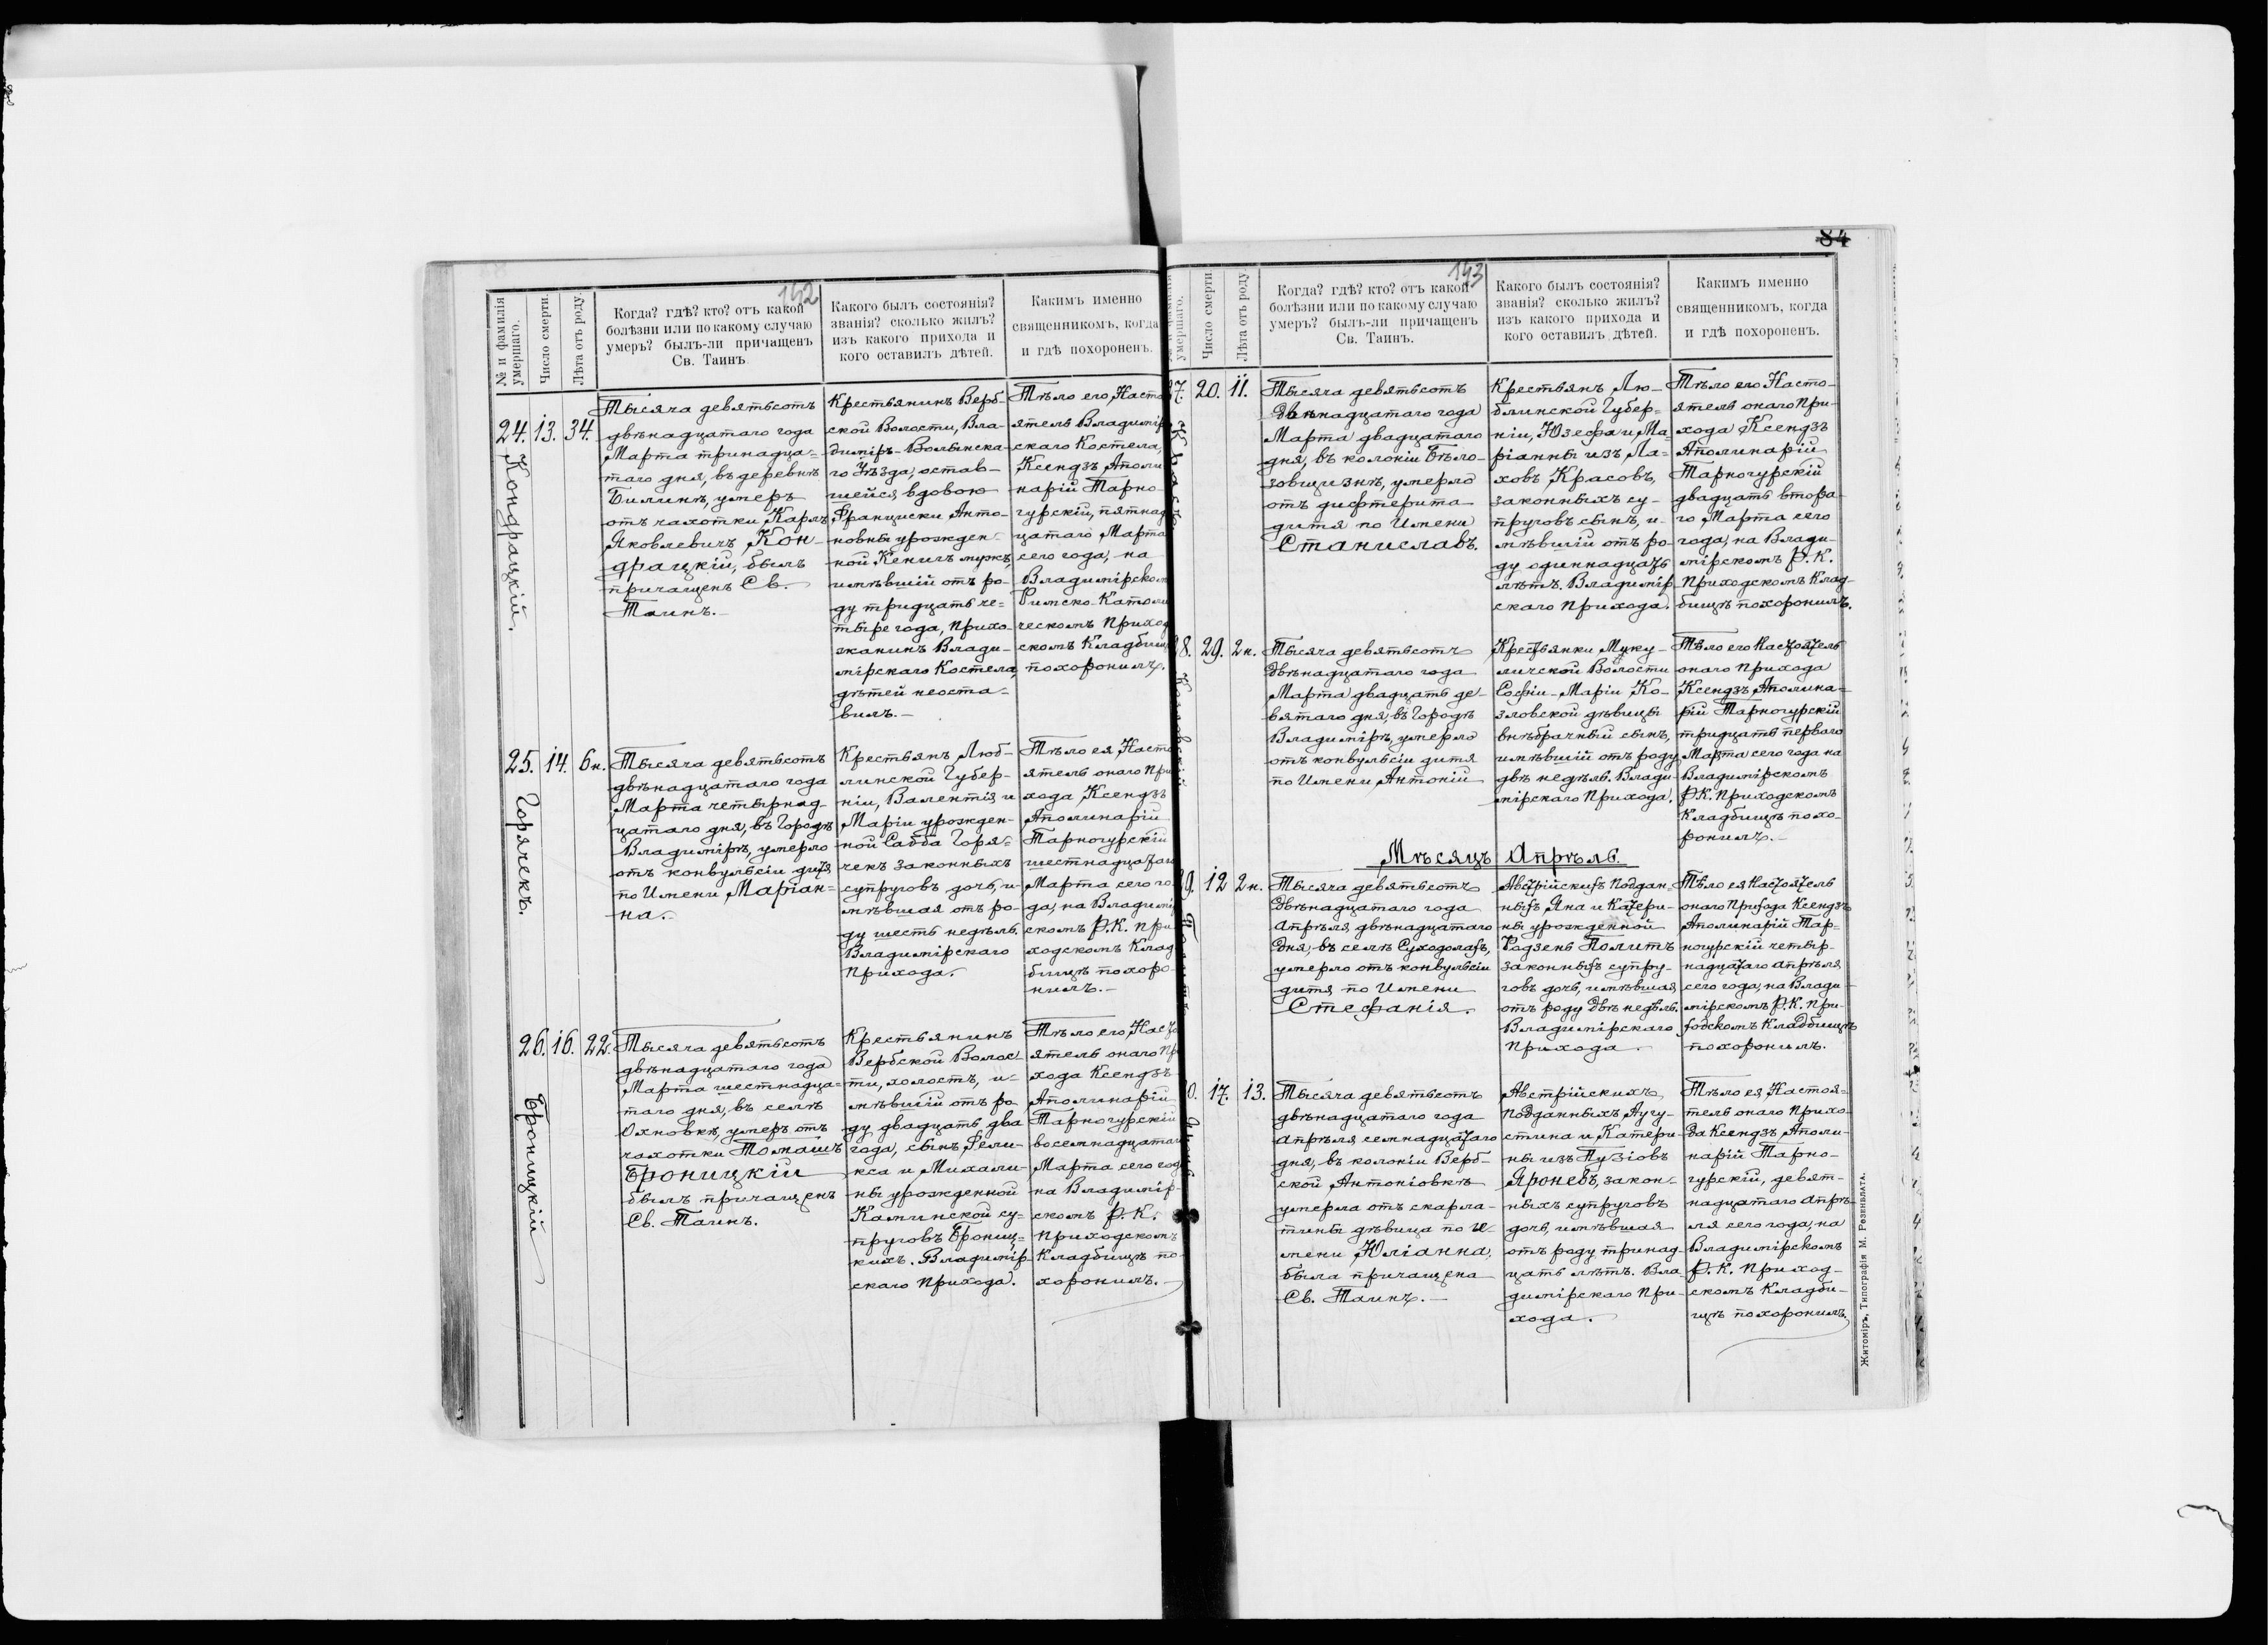 152
№ и фамилія
умершаго.
Число смерти.
Лѣта отъ роду.
Когда? гдѣ? кто? отъ какой
болѣзни или по какому случаю
умеръ? былъ-ли причащенъ
Св. Таинъ
Какого былъ состоянія?
званія? сколько жилъ?
изъ какого прихода и
кого оставилъ дѣтей.
Какимъ именно
священникомъ, когда
и гдѣ похороненъ.
24.
Кондрацкій.
13.
34.
Тысяча девятьсотъ
двѣнадцатаго года
Марта тринадца-
таго дня, въ деревнѣ
Билинѣ, умеръ
отъ чахотки Карлъ
Яковлевичъ Кон-
драцкій, былъ
причащенъ Св.
Таинъ.-
Крестьянинъ Верб-
ской Волости, Вла-
диміръ-Волынска-
го Уѣзда, остав-
шейся вдовою
Франциски Анто-
новны урожден-
ной Кенигъ мужъ,
имѣвшій отъ ро-
ду тридцать че-
тыре года, прихо-
жанинъ Влади-
мірскаго Костела,
дѣтей неоста-
вилъ.-
Тѣло его, Насто
ятель Владимір
скаго Костела,
Ксендзъ Аполи
нарій Тарно-
гурскій, пятнад
цатаго Марта
сего года, на
Владимірском
Римско-Католи
ческомъ Приход
скомъ Кладбищ
похоронилъ.
25.
Горячекъ.
14.
6н.
Тысяча девятьсотъ
двѣнадцатаго года
Марта четырнад-
цатаго дня, въ Городѣ
Владимірѣ, умерло
отъ конвульсіи дитя
по Имени Маріан-
на.
Крестьянъ Люб-
линской Губер-
ніи, Валентія и
Маріи урожден-
ной Сабба Горя-
чекъ законныхъ
супруговъ дочь, и-
мѣвшая отъ ро-
ду шесть недѣль.
Владимірскаго
Прихода.
Тѣло ея, Насто
ятель онаго При
хода Ксендзъ
Аполинарій
Тарногурскій
шестнадцатаго
Марта сего го-
да, на Владимір
скомъ Р.К. При
ходскомъ Клад
бищѣ похоро-
нилъ.-
26.
Броницкій
16.
22.
Тысяча девятьсотъ
двѣнадцатаго года
Марта шестнадца-
таго дня, въ селѣ
Охновкѣ, умеръ отъ
чахотки Томашъ
Броницкій
былъ причащенъ
Св. Таинъ.
Крестьянинъ
Вербской Волос-
ти, холостъ, и-
мѣвшій отъ ро-
ду двадцать два
года, сынъ Фели-
кса и Михали-
ны урожденной
Каминской су-
пруговъ Брониц-
кихъ. Владимір-
скаго Прихода.
Тѣло его, Насто
ятель онаго Пр
хода Ксендзъ
Аполинарій
Тарногурскій
восемнадцатаго
Марта сего года
на Владимір-
скомъ Р.К.
Приходскомъ
Кладбищѣ по-
хоронилъ.-
84
153
умершаго.
Число смерти.
Лѣта отъ роду.
Когда? гдѣ? кто? отъ какой
болѣзни или по какому случаю
умеръ? былъ-ли причащенъ
Св. Таинъ.
Какого былъ состоянія?
званія? сколько жилъ?
изъ какого прихода и
кого оставилъ дѣтей.
Какимъ именно
священникомъ, когда
и гдѣ похороненъ.
27.
20.
11.
Тысяча девятьсотъ
двѣнадцатаго года
Марта двадцатаго
дня, въ колоніи Бѣло-
зовщизнѣ, умерло
отъ дифтерита
дитя по Имени
Станиславъ.
Крестьянъ Лю-
блинской Губер-
ніи, Юзефа и Ма-
ріанны изъ Ла-
ховъ Красовъ,
законныхъ су-
пруговъ сынъ, и-
мѣвшій отъ ро-
ду одиннадцать
лѣтъ. Владимір-
скаго Прихода.
Тѣло его Насто-
ятель онаго При-
хода Ксендзъ
Аполинарій
Тарногурскій
двадцать втора-
го Марта сего
года, на Влади-
мірскомъ Р.К.
Приходскомъ Клад-
бищѣ похоронилъ.
28.
29.
2н.
Тысяча девятьсотъ
двѣнадцатаго года
Марта двадцать де-
вятаго дня, въ Городѣ
Владимірѣ, умерло
отъ конвульсіи дитя
по Имени Антоній
Крестьянки Муку-
личской Волости
Софіи-Маріи Ко-
зловской дѣвицы
внѣбрачный сынъ,
имѣвшій отъ роду
двѣ недѣль. Влади-
мірскаго Прихода.
Тѣло его Настоятель
онаго Прихода
Ксендзъ Аполина-
рій Тарногурскій
тридцать перваго
Марта сего года на
Владимірскомъ
Р.К. Приходскомъ
Кладбищѣ похо-
ронилъ.-
Мѣсяцъ Апрѣль.
29.
12
2н.
Тысяча девятьсотъ
двѣнадцатаго года
Апрѣля двѣнадцатаго
дня, въ селѣ Суходолахъ,
умерло отъ конвульсіи
дитя по Имени
Стефанія.
Австрійскихъ поддан-
ныхъ Яна и Катери-
ны урожденной
Родзень Политъ
законныхъ супру-
говъ дочь, имѣвшая
отъ роду двѣ недѣль.
Владимірскаго
Прихода.
Тѣло ея Настоятель
онаго Прихода Ксендзъ
Аполинарій Тар-
ногурскій четыр-
надцатаго Апрѣля
сего года, на Влади-
мірскомъ Р.К. При-
ходскомъ Кладбищѣ
похоронилъ.
17.
13.
Тысяча девятьсотъ
двѣнадцатаго года
Апрѣля семнадцатаго
дня, въ колоніи Верб-
ской Антоніовкѣ
умерла отъ скарла-
тины дѣвица по И-
мени Юліанна,
была причащена
Св. Таинъ.-
Австрійскихъ
подданныхъ Авгу-
стина и Катери-
ны изъ Пузіовъ
Яроневъ, закон-
ныхъ супруговъ
дочь, имѣвшая
отъ роду тринад-
цать лѣтъ. Вла-
димірскаго При-
хода.
Тѣло ея Настоя-
тель онаго Прихо-
да Ксендзъ Аполи-
нарій Тарно-
гурскій, девят-
надцатаго Апрѣ-
ля сего года, на
Владимірскомъ
Р.К. Приход-
скомъ Кладби-
щѣ похоронилъ.
Житоміръ, Типографія М. Резенблата.